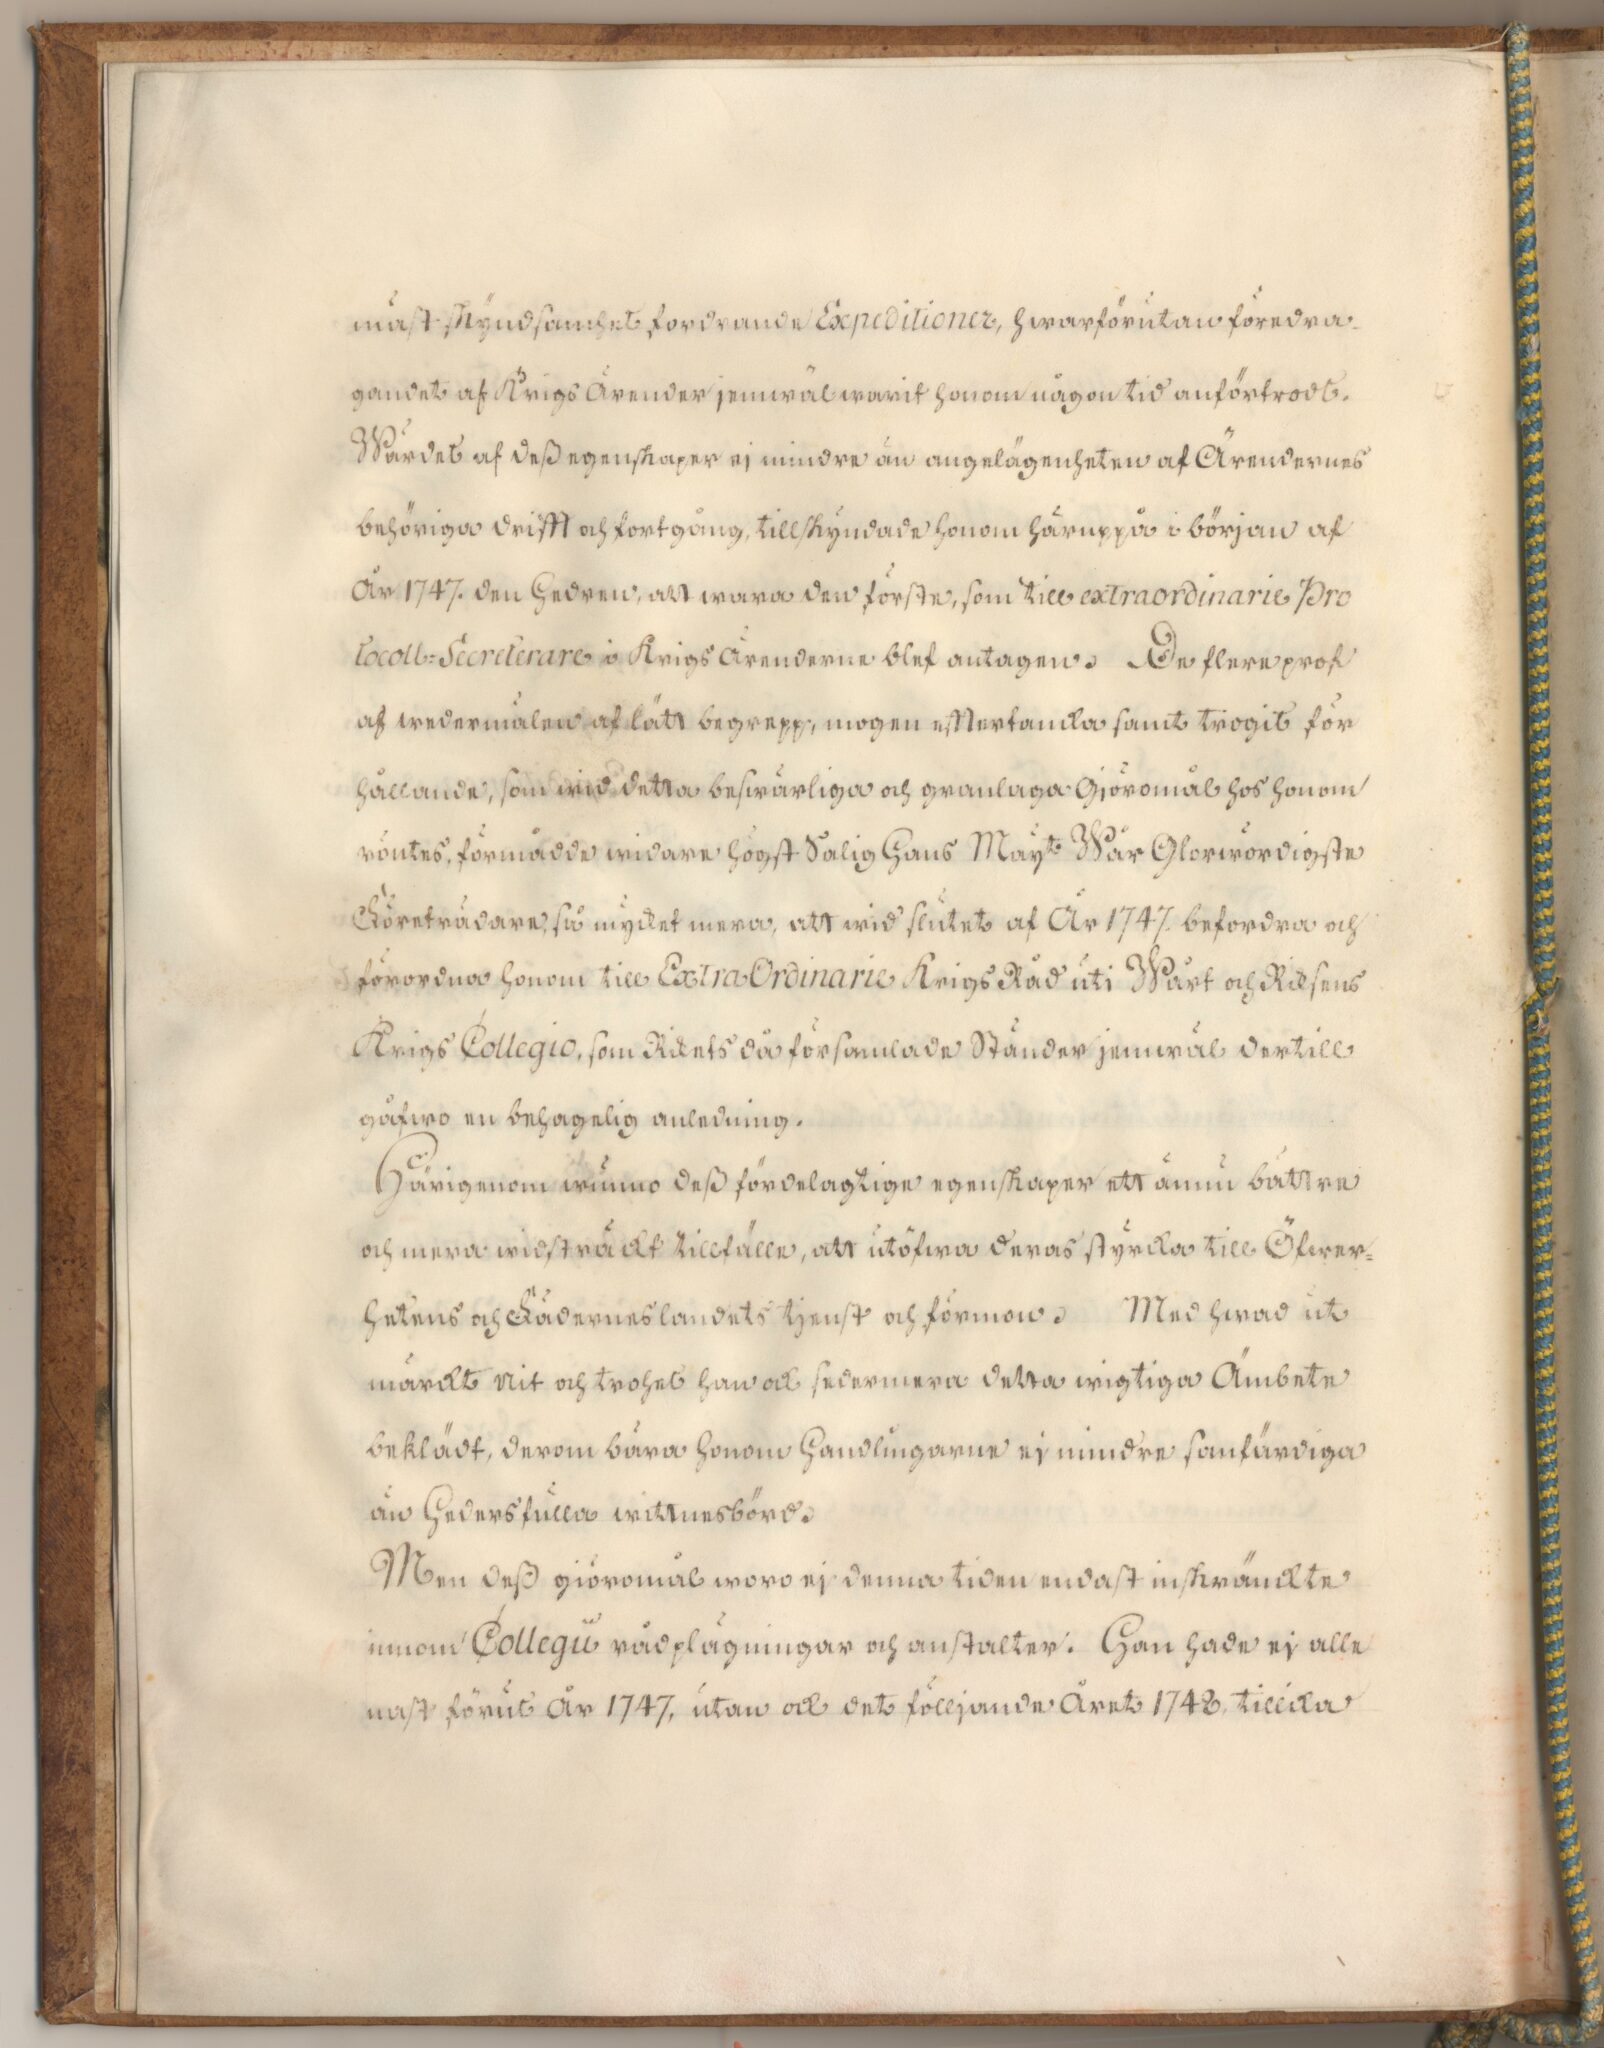 mäst skyndsamhet fordrande Expeditioner, hwarförutan föredra-
gandet af Krigs Ärender jemwäl warit honom någon tid anförtrodt.
Wärdet af deß egenskaper ej mindre än angelägenheten af Ärendernes
behöriga drifft och fortgång, tillskyndade honom häruppå i början af
År 1747. den Hedren, att wara den förste, som till extraordinarie Pro
tocoll-Secreterare i Krigs Ärenderne blef antagen. De flere prof
af wedermälen af lätt begrepp, mogen efftertancka samt trogit för
hållande, som wid detta beswärliga och granlaga Giöromål hos honom
röntes, förmådde widare högst Salig Hans Mayts Wår Glorwördigste
Företrädare, så mycket mera, att wid slutet af År 1747. befordra och
förordna honom till Extra Ordinarie Krigs Råd uti Wårt och Riksens
Krigs Collegio, som Rikets då församlade Ständer jemwäl dertill
gåfwo en behagelig anledning.
Härigenom wunno deß fördelagtige egenskaper ett ännu bättre
och mera widsträckt tillfälle, att utöfwa deras styrcka till Öfwer-
hetens och Fäderneslandets tjenst och förmon. Med hwad ut
märckt nit och trohet han ock sedermera detta wigtiga Ämbete
beklädt, derom bära honom Handlingarne ej mindre sanfärdiga
än Hedersfulla wittnesbörd.
Men deß giöromål woro ej denna tiden endast inskränckte
innom Collegii rådplägningar och anstalter. Han hade ej alle
nast förut År 1747, utan ock det fölljande Året 1748, tillicka